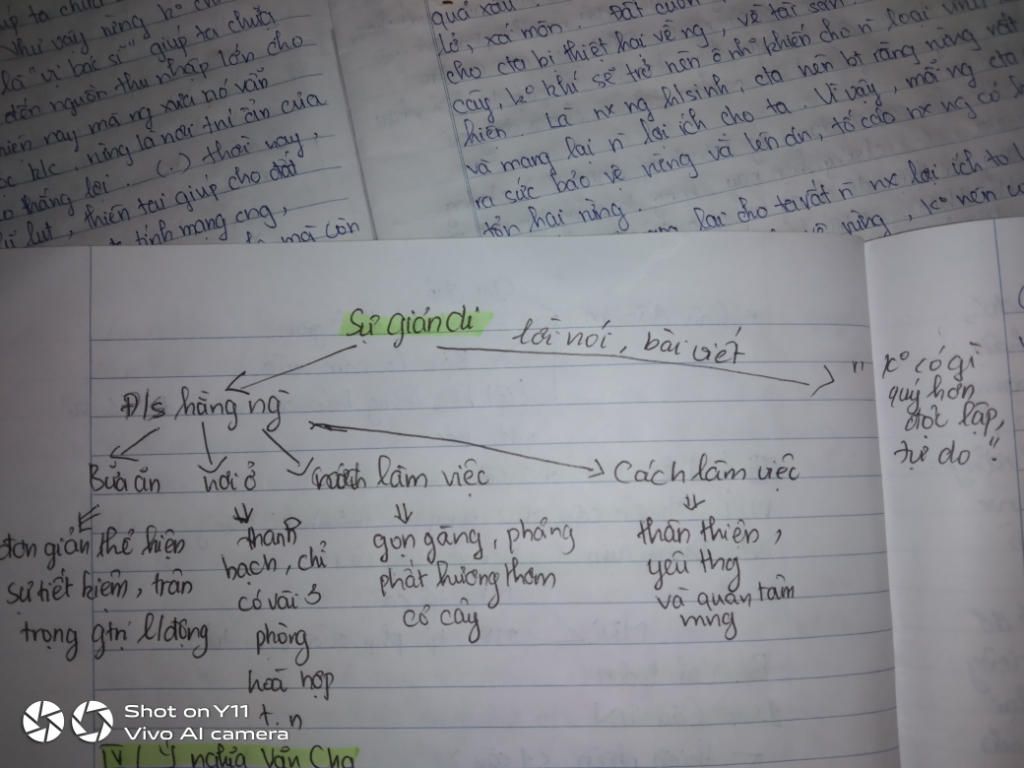 úp ta chữa
Như vậy rừng k°
là "vị bác sĩ" giúp ta chữa
đến nguồn thu nhập lớn cho
hiên nay mà ng xưa nó vẫn
k/c. rừng là nơi trú ẩn của
thắng lợi. (.) thời nay,
lũ lụt, thiên tai giúp cho đất
tính mạng cng,
mà còn
quá xấu.
lở, xói mòn. Đất
cho cta bị thiệt hại về ng, về tài sản
cây, k° khí sẽ trở nên ô nh° khiến cho n loài
hiếm. Là nx ng h/sinh, cta nên bt rằng rừng rất
và mang lại n lợi ích cho ta. Vì vậy, mỗi ng cta
ra sức bảo vệ rừng và lên án, tố cáo nx ng có
tổn hại rừng.
lại cho ta rất n nx lợi ích to
rừng, k° nên
Sự giản dị
lời nói, bài viết
" k° có gì
quý hơn
độc lập,
tự do".
Đ/s hằng ng
Bữa ăn nơi ở cách làm việc Cách làm việc
đơn giản thể hiện
sự tiết kiệm, trân
trọng gtrị l/động
thanh
bạch, chỉ
có vài 3
phòng
hoà hợp
t.n
gọn gàng, phảng
phất hương thơm
cỏ cây
thân thiện,
yêu thg
và quan tâm
mng
IV / Ý nghĩa Văn Chg
Shot on Y11
Vivo AI camera